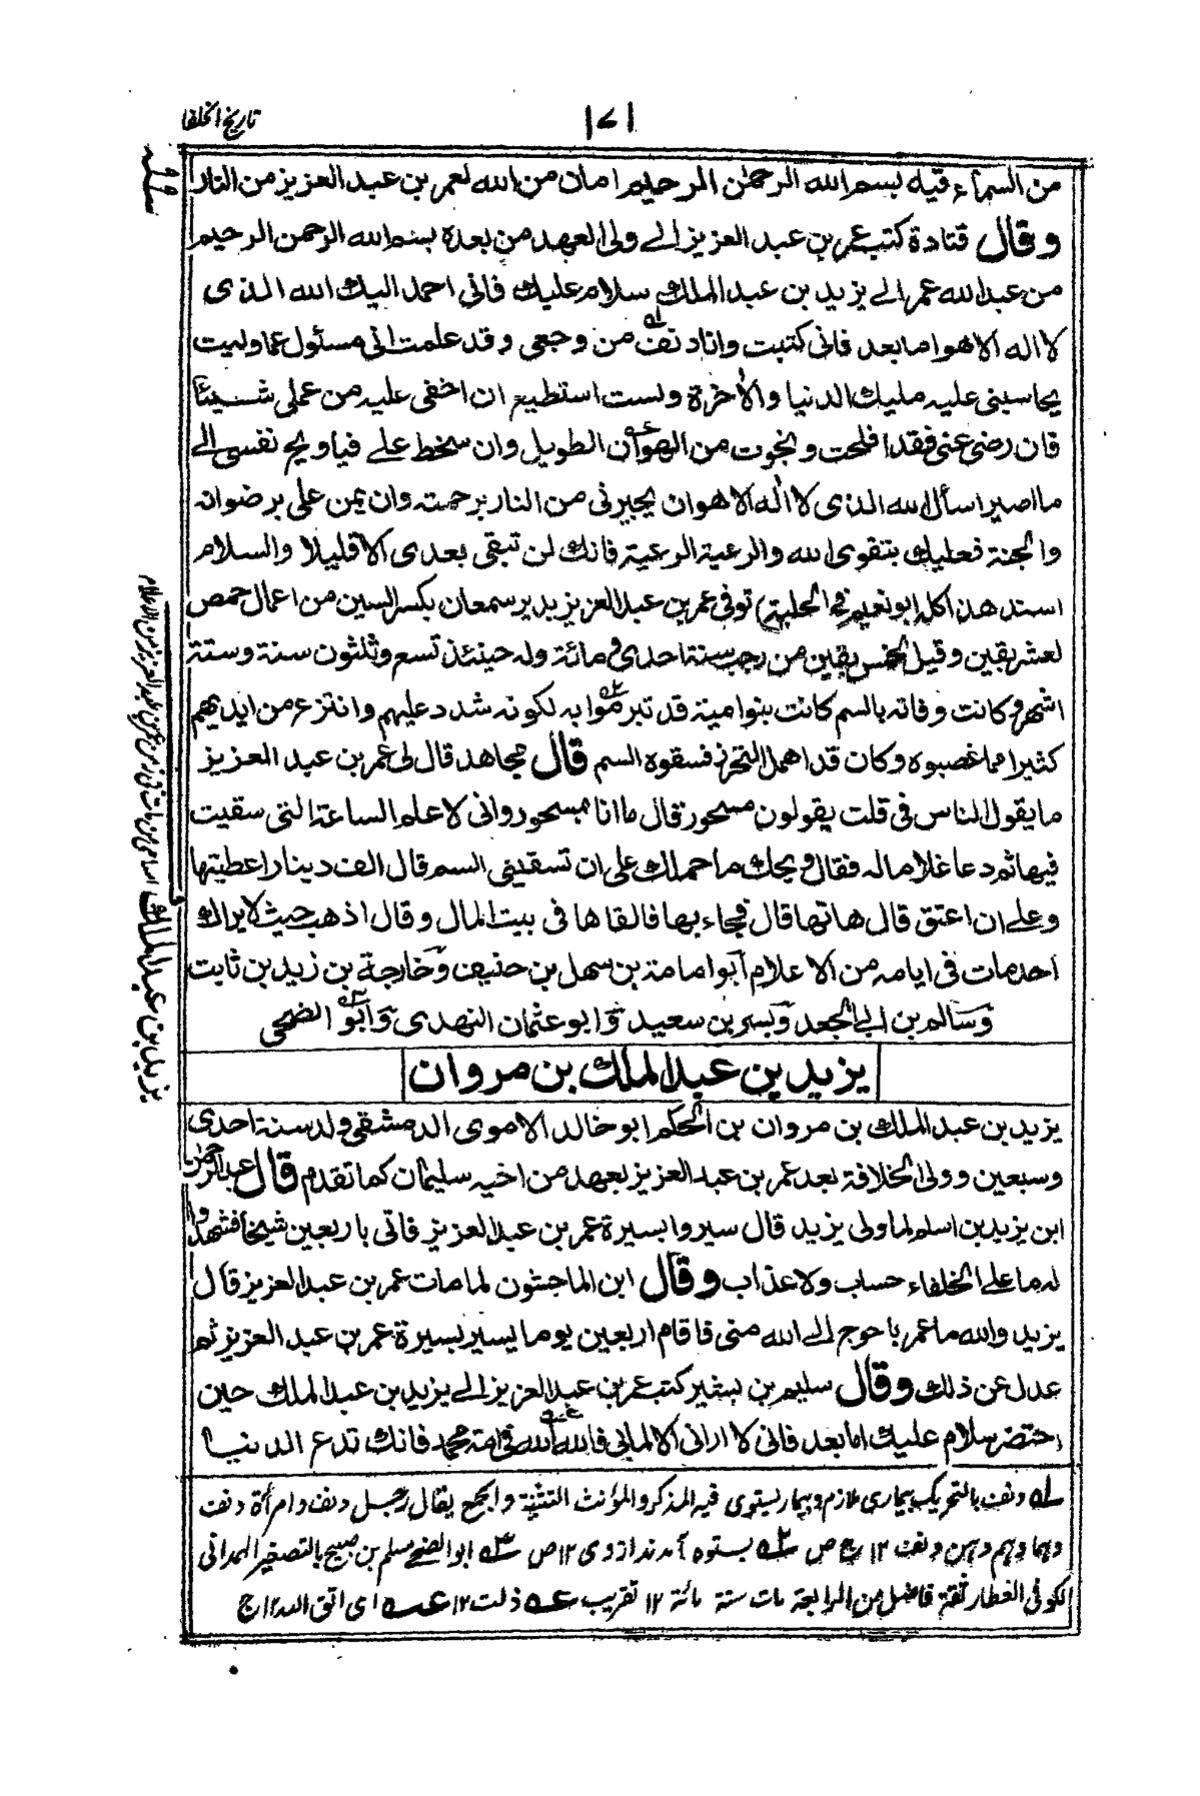 تاریخ الخلفا
۱۷۱
من السمآء فيه بسم الله الرحمٰن الرحيم امان من الله لعمر بن عبد العزيز من النار
وقال قتادة كتب عمر بن عبد العزيز الى ولى العهد من بعده بسم الله الرحمن الرحيم
من عبد الله عمر الى يزيد بن عبد الملك سلام عليك فانى احمد اليك الله الذى
لا اله الا هو اما بعد فانى كتبت وانا دنف من وجعى وقد علمت انى مسئول عما وليت
يحاسبنى عليه مليك الدنيا والأخرة ولست استطيع ان اخفى عليه من عملى شيئا
فان رضى عنى فقد افلحت ونجوت من الهوان الطويل وان سخط على فيا ويح نفسى الى
ما اصير اسأل الله الذى لا اله الا هو ان يجيرنى من النار برحمته وان يمن على برضوانه
والجنة فعليك بتقوى الله والرعية الرعية فانك لن تبقى بعدى الا قليلا والسلام
اسند هذا كله ابو نعيم فى الحلية) توفى عمر بن عبد العزيز بدير سمعان بكسر السين من اعمال حمص
لعشر بقين وقيل لخمس بقين من رجب سنة احدى و مائة وله حينئذ تسع وثلثون سنة وستة
اشهر وكانت وفاته بالسم كانت بنو امية قد تبرموا به لكونه شدد عليهم وانتزع من ايديهم
كثيرا مما غصبوه وكان قد اهمل التحرز فسقوه السم قال مجاهد قال لى عمر بن عبد العزيز
ما يقول الناس فى قلت يقولون مسحور قال ما انا بمسحور وانى لا علم الساعة التى سقيت
فيها ثم دعا غلاما له فقال ويحك ما حملك على ان تسقينى السم قال الف دينار اعطيتها
وعلى ان اعتق قال هاتها قال فجاء بها فالقاها فى بيت المال وقال اذهب حيث لا يراك
احد مات فى ايامه من الاعلام ابو امامة بن سهل بن حنيف وخارجة بن زيد بن ثابت
وسالم بن ابى الجعد وبسر بن سعيد وابو عثمان النهدى وابو الضحى
يزيد بن عبد الملك بن مروان
يزيد بن عبد الملك بن مروان بن الحكم ابو خالد الاموى الدمشقى ولد سنة احدى
وسبعين وولى الخلافة بعد عمر بن عبد العزيز بعهد من اخيه سليمان كما تقدم قال عبد الرحمن
ابن يزيد بن اسلم لما ولى يزيد قال سيروا بسيرة عمر بن عبد العزيز فاتى باربعين شيخا فشهدوا
له ما على الخلفاء حساب ولا عذاب وقال ابن الماجشون لما مات عمر بن عبد العزيز قال
يزيد والله ما عمر باحوج الى الله منى فاقام اربعين يوما يسير بسيرة عمر بن عبد العزيز ثم
عدل عن ذلك وقال سليم بن بشير كتب عمر بن عبد العزيز الى يزيد بن عبد الملك حين
احتضر سلام عليك اما بعد فانى لا ارانى الا لما بى فالله الله فى امة محمد فانك تدع الدنيا
له دنف بالتحریک بیماری ملازم و بیمار لیستوی فیه المذکر والمؤنث التثنیة والجمع یقال رجل دنف وامرأة دنف
وهما وهم وهن دنف ۱۲ ص ۲ه بستوه آمدند از وی ۱۲ ص ۳ه ابو الضحی مسلم بن صبیح بالتصغیر الهمدانی
الکوفی العطار ثقة فاضل من الرابعة مات سنة مائة ۱۲ تقریب عه ذلت ۱۲ عه ای اتق الله ۱۲ ج
یزید بن عبد الملک